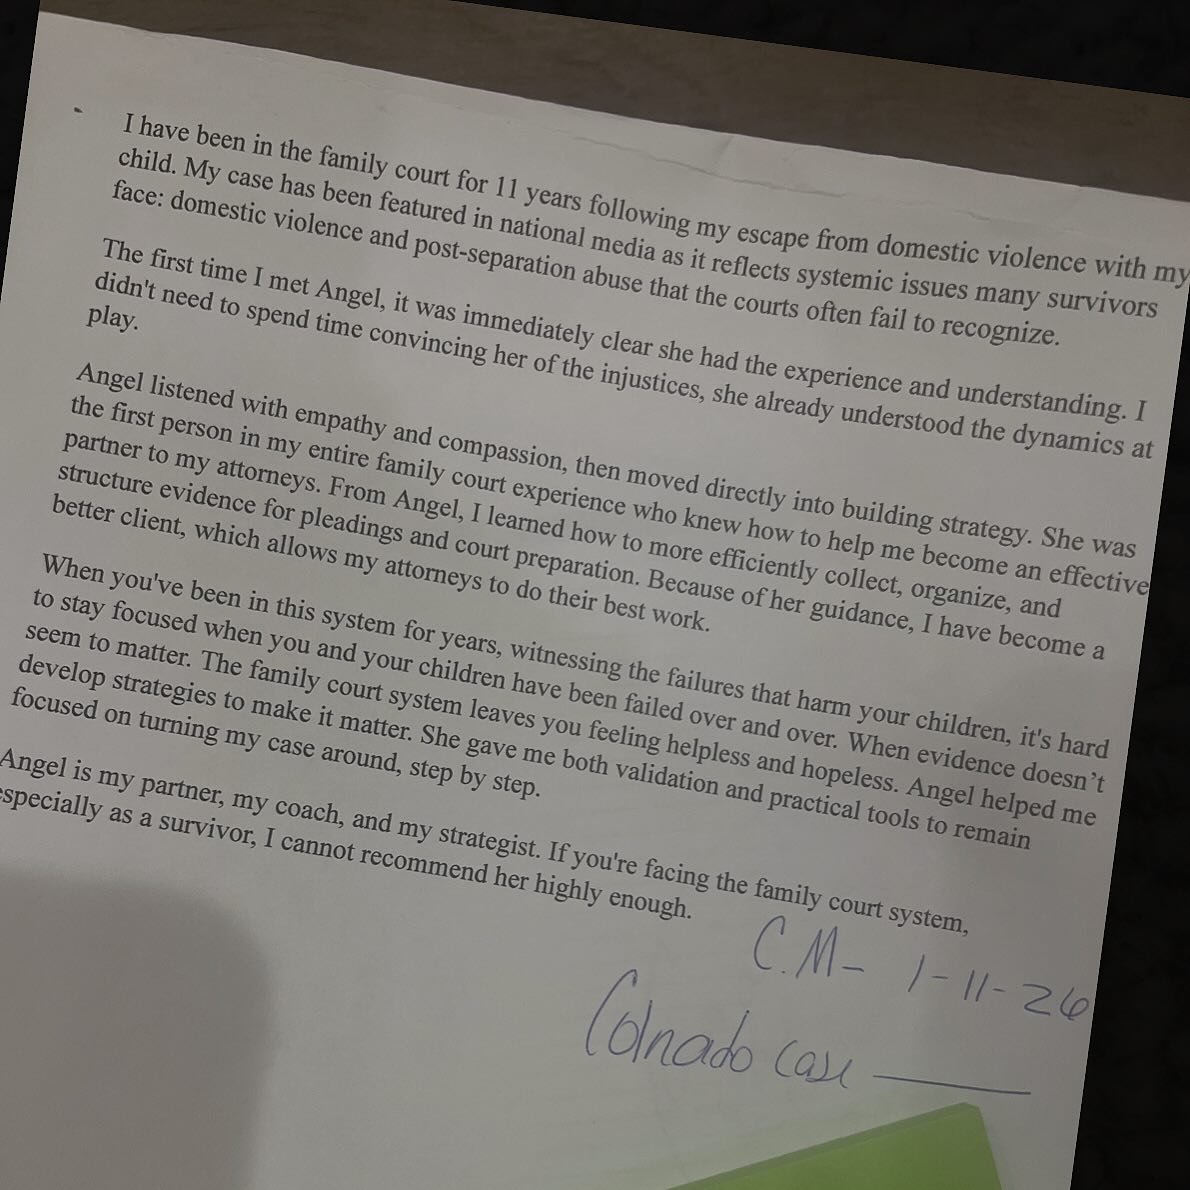 I have been in the family court for 11 years following my escape from domestic violence with my
child. My case has been featured in national media as it reflects systemic issues many survivors
face: domestic violence and post-separation abuse that the courts often fail to recognize.
The first time I met Angel, it was immediately clear she had the experience and understanding. I
didn't need to spend time convincing her of the injustices, she already understood the dynamics at
play.
Angel listened with empathy and compassion, then moved directly into building strategy. She was
the first person in my entire family court experience who knew how to help me become an effective
partner to my attorneys. From Angel, I learned how to more efficiently collect, organize, and
structure evidence for pleadings and court preparation. Because of her guidance, I have become a
better client, which allows my attorneys to do their best work.
When you've been in this system for years, witnessing the failures that harm your children, it's hard
to stay focused when you and your children have been failed over and over. When evidence doesn’t
seem to matter. The family court system leaves you feeling helpless and hopeless. Angel helped me
develop strategies to make it matter. She gave me both validation and practical tools to remain
focused on turning my case around, step by step.
Angel is my partner, my coach, and my strategist. If you're facing the family court system,
especially as a survivor, I cannot recommend her highly enough.
C.M- 1-11-26
Colorado case